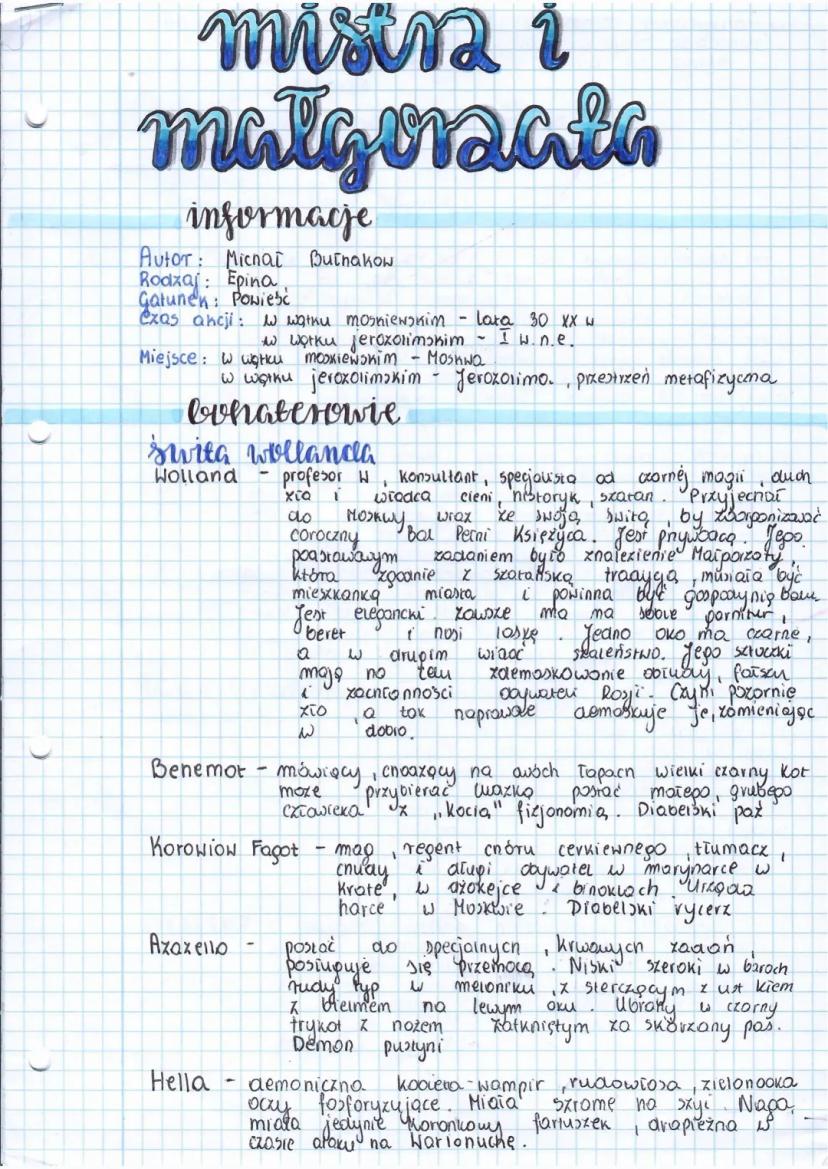 mistrz i
małgorzata
informacje
Autor: Michał Bułhakow
Rodzaj: Epika
Gatunek: Powieść
Czas akcji: w wątku moskiewskim - lata 30 XX w
w wątku jerozolimskim - I w. n.e.
Miejsce: w wątku moskiewskim - Moskwa
w wątku jerozolimskim - Jerozolima, przestrzeń metafizyczna
bohaterowie
świta wollanda
Wolland - profesor W, konsultant, specjalista od czarnej magii, duch
zła i władca cieni, historyk, szatan. Przyjechał
do Moskwy wraz ze swoją świtą, by zorganizować
coroczny Bal Pełni Księżyca. Jest przywódcą. Jego
podstawowym zadaniem było znalezienie Małgorzaty,
która zgodnie z szatańską tradycją, musiała być
mieszkanką miasta i powinna być gospodynią balu.
Jest elegancki. Zawsze ma na sobie garnitur,
beret i nosi laskę. Jedno oko ma czarne,
a w drugim widać szaleństwo. Jego sztuczki
mają na celu zdemaskowanie obłudy, fałszu
i zachłanności obywateli Rosji. Czyni pozornie
zło, a tak naprawdę demaskuje je, zamieniając
w dobro.
Benemot - mówiący, chodzący na dwóch łapach wielki czarny kot
może przybierać ludzką postać małego, grubego
człowieka z „kocią" fizjonomią. Diabelski paź
Korowiow Fagot - mag, regent chóru cerkiewnego, tłumacz,
chudy i długi obywatel w marynarce w
kratę, w dżokejce i binoklach. Urządza
harce w Moskwie. Diabelski rycerz
Azazello - postać do specjalnych, krwawych zadań,
posługuje się przemocą. Niski szeroki w barach
rudy typ w meloniku, z sterczącym z ust kłem
z bielmem na lewym oku. Ubrany w czarny
trykot z nożem zatkniętym za skórzany pas.
Demon pustyni
Hella - demoniczna kobieta-wampir, rudowłosa, zielonooka
oczy fosforyzujące. Miała szramę na szyi. Naga,
miała jedynie koronkowy fartuszek, drapieżna w
czasie ataku na Warionuchę.